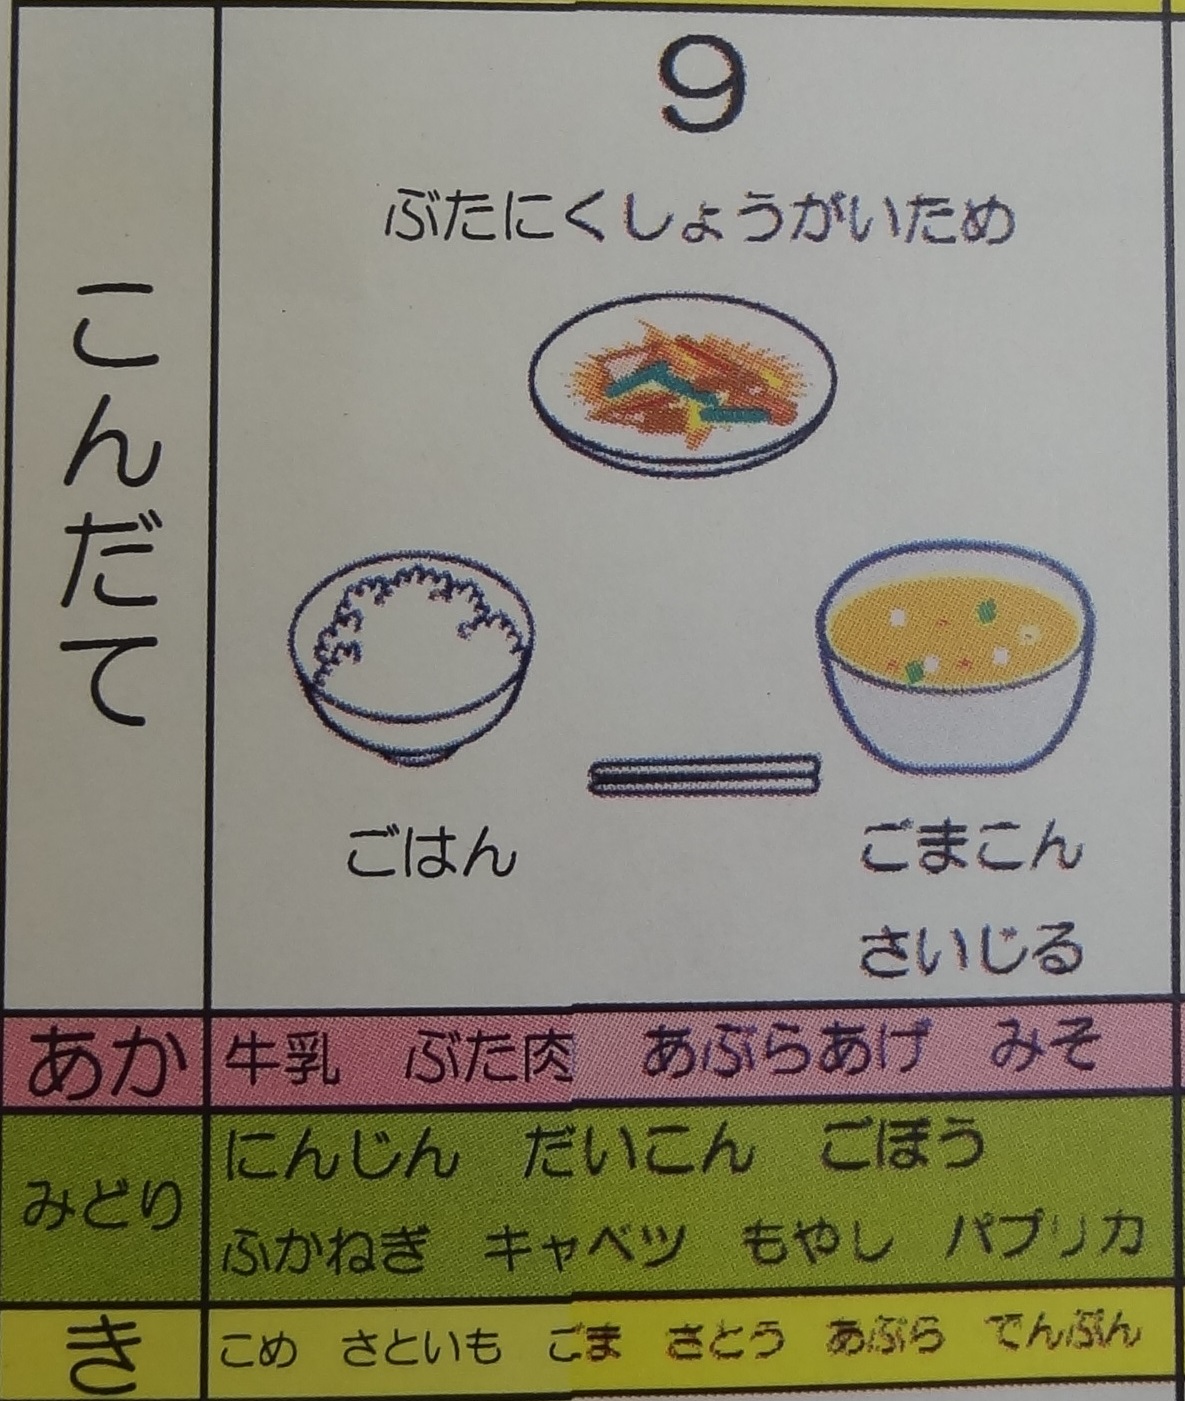 9
こんだて
ぶたにくしょうがいため
ごはん
ごまこん
さいじる
あか
牛乳 ぶた肉 あぶらあげ みそ
みどり
にんじん だいこん ごぼう
ふかねぎ キャベツ もやし パプリカ
き
こめ さといも ごま さとう あぶら でんぷん